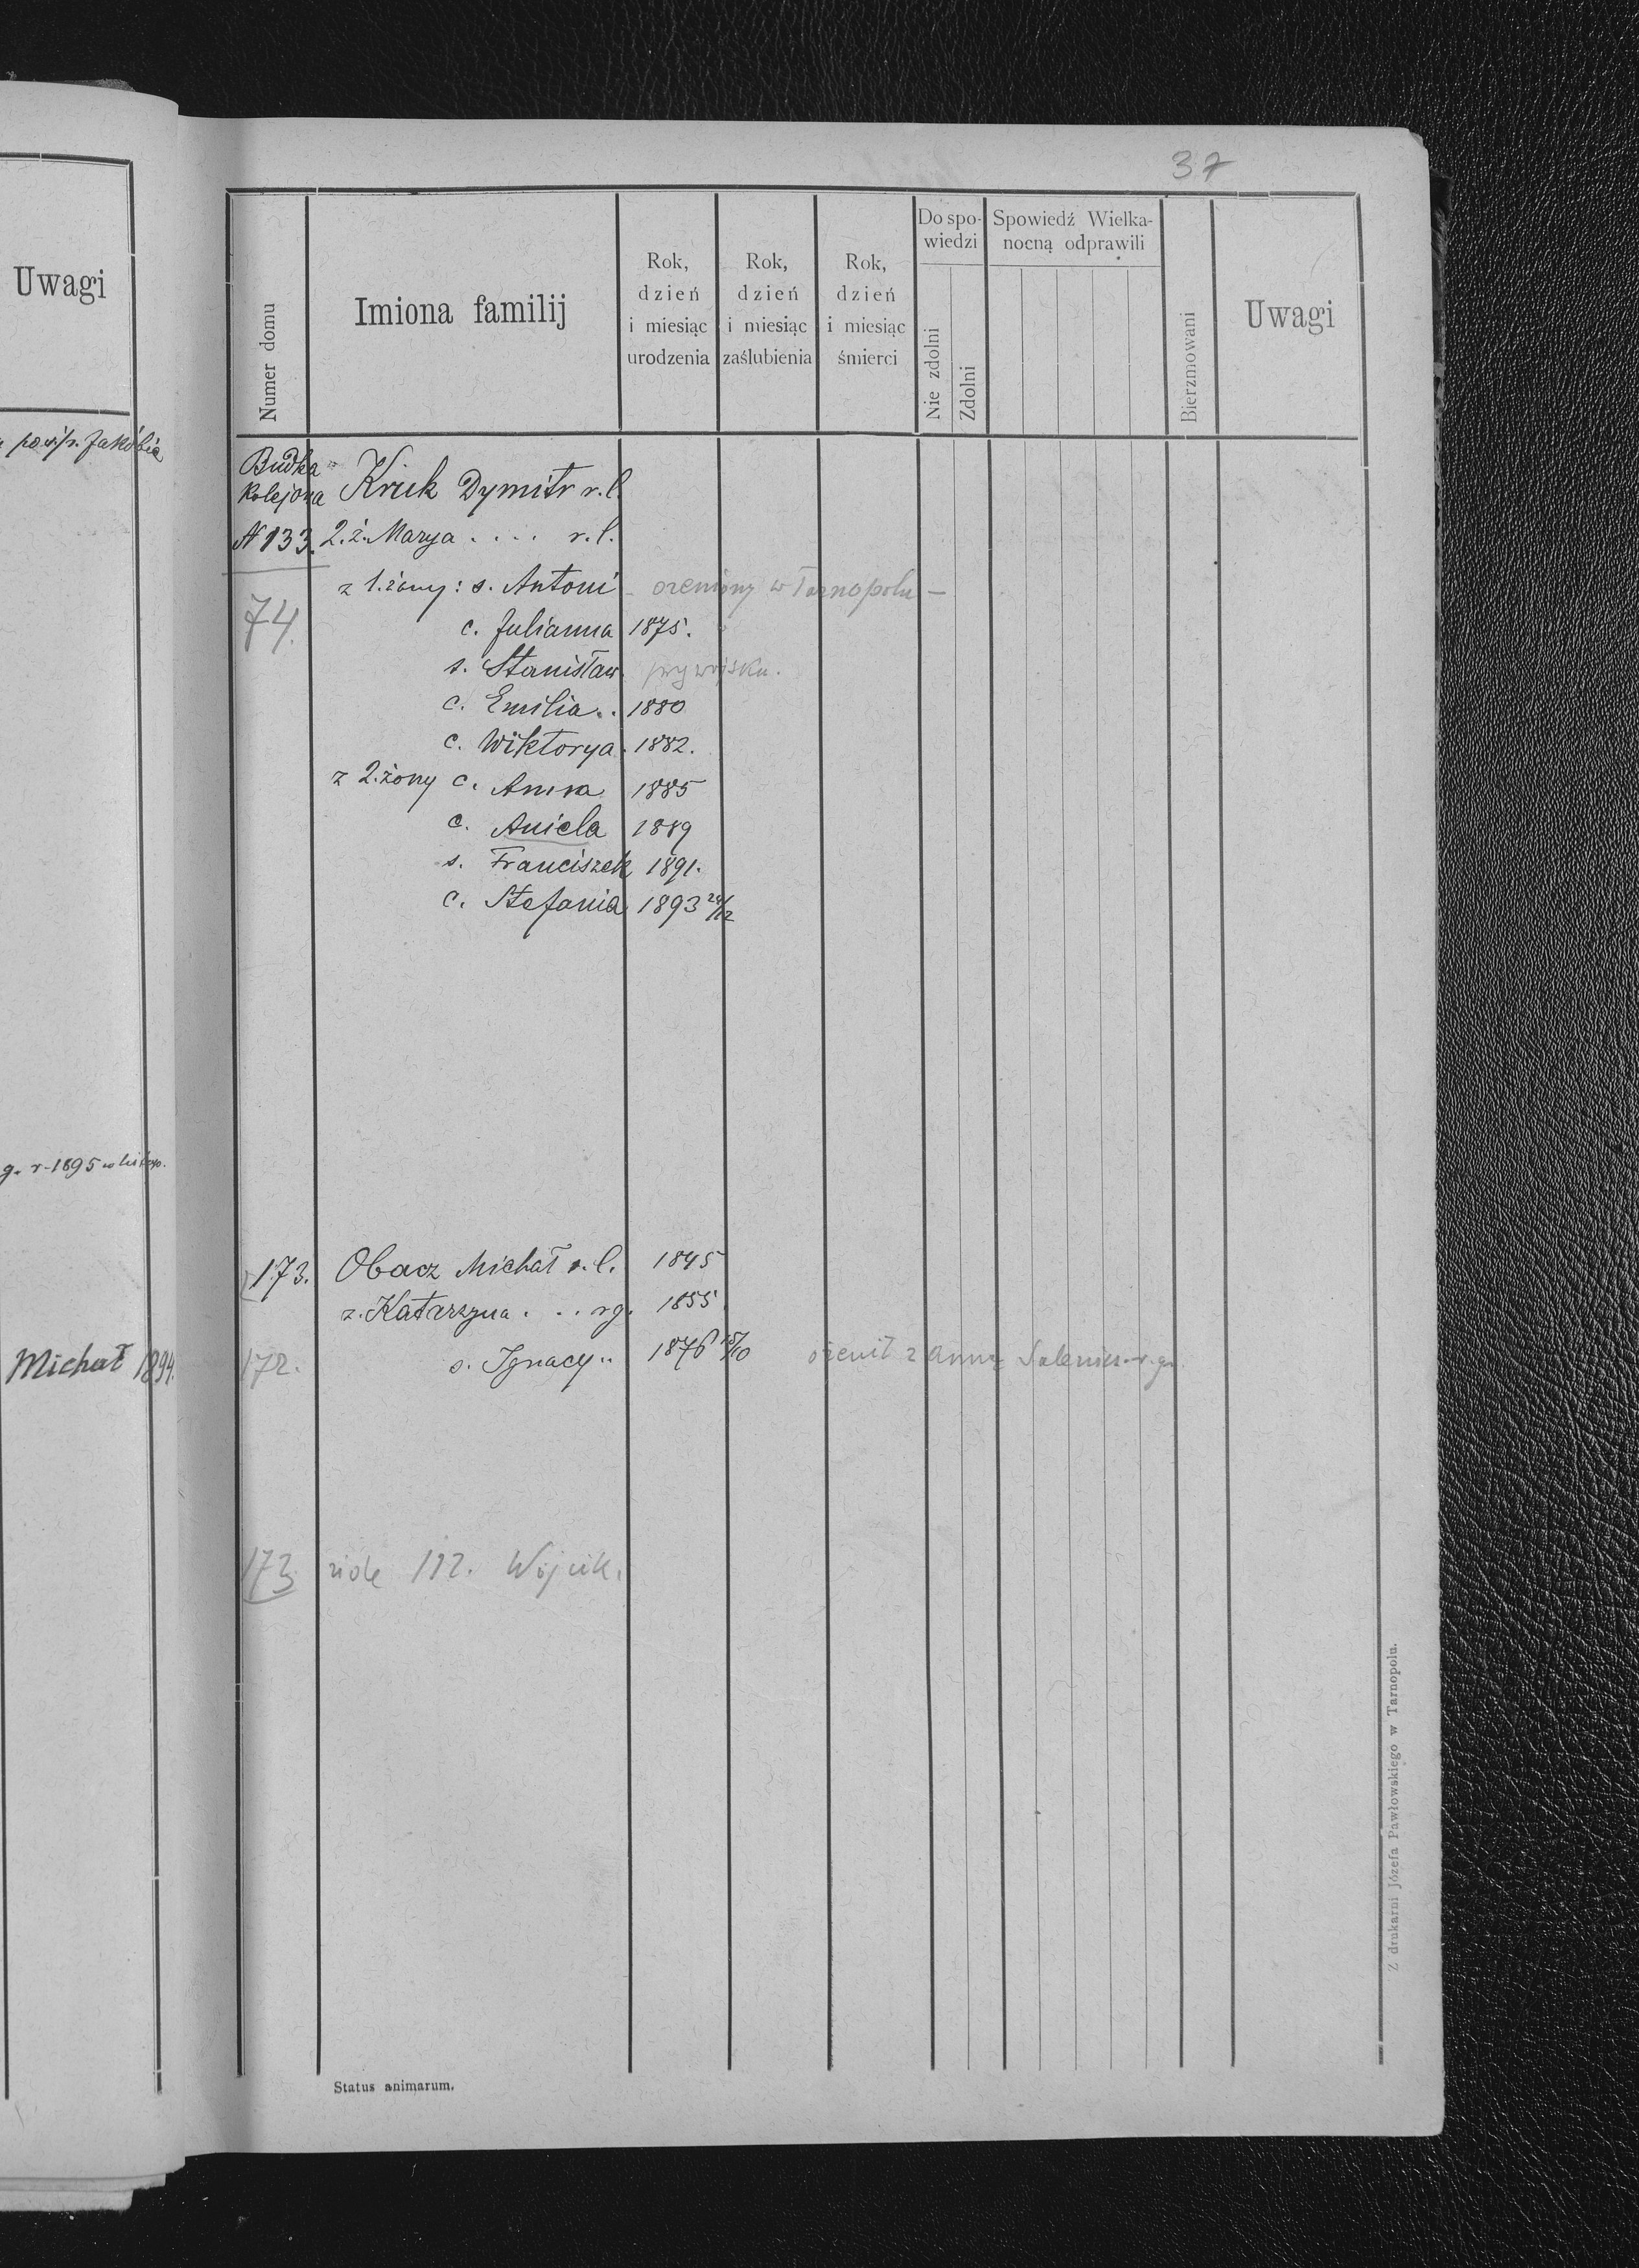 Uwagi
Jakóbia
g. r. 1895
Michał 1894.
37
Numer domu
Imiona familij
Rok,
dzień
i miesiąc
urodzenia
Rok,
dzień
i miesiąc
zaślubienia
Rok,
dzień
i miesiąc
śmierci
Do spo-
wiedzi
Nie zdolni
Zdolni
Spowiedź Wielka-
nocną odprawili
Bierzmowani
Uwagi
Budka
kolejowa
N 133.
Kruk Dymitr r. l.
2. ż. Marya . . . . r. l.
z 1. żony: s. Antoni - ożeniony w Tarnopolu -
74.
c. Julianna 1875.
s. Stanisław przy wojsku.
c. Emilia . . 1880
c. Wiktorya . 1882.
z 2. żony c. Anna 1885
c. Aniela 1889
s. Franciszek 1891.
c. Stefania 1893 24/12
173. Obacz Michał r. l. 1845
ż. Katarzyna . . . rg. 1855
172. s. Ignacy .. 1876 15/10 ożenił z Anną r. g.
173 vide 112. Wójcik.
Status animarum.
Z drukarni Józefa Pawłowskiego w Tarnopolu.